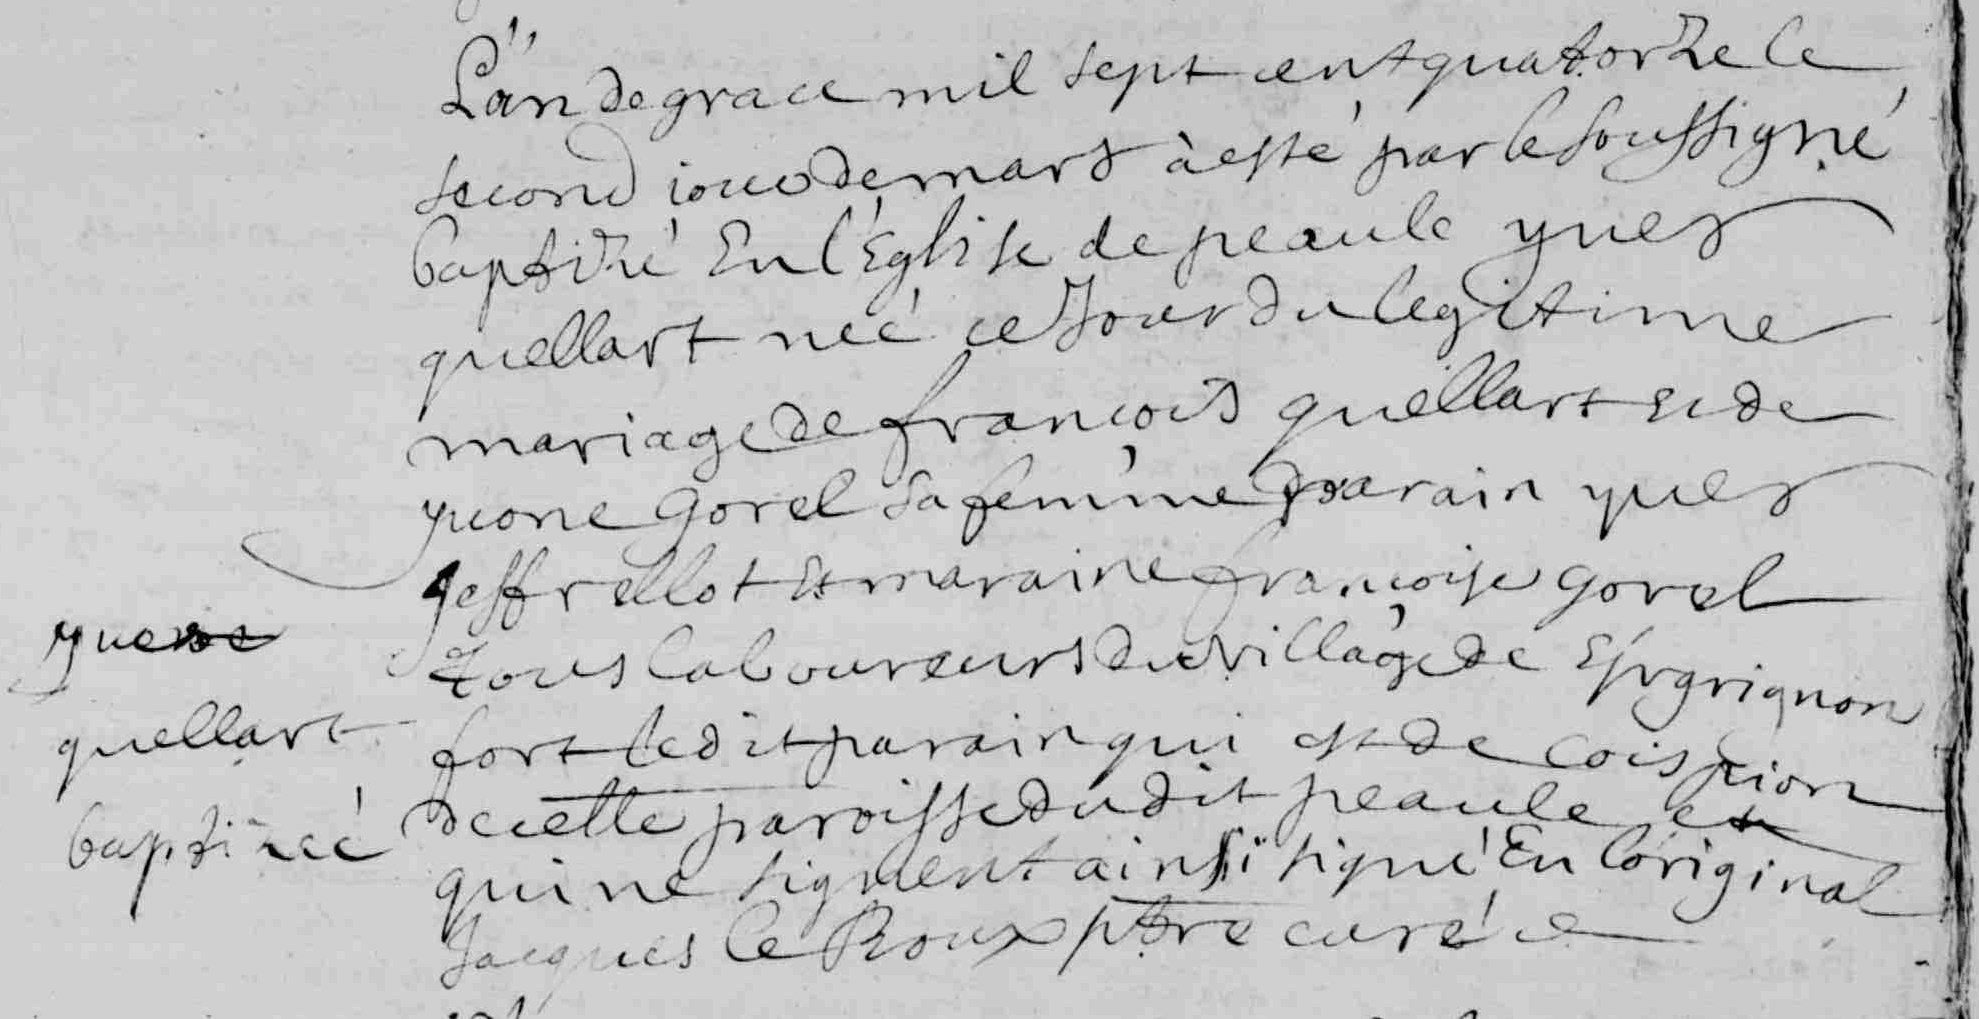 L'an de grace mil sept cent quatorze le
second iour de mars à esté par le soussigné
baptizé En l'Eglise de peaule yues
quellart néé ce Jour du legitime
mariage de françois quellart et de
yuone Gorel sa femme parain yues
Jeffrellot Et maraine françoise gorel
Tous laboureurs du village de
fort ledit parain qui est de coispion
de cette paroisse dudit peaule et
qui ne signent ainsi signé En l'original
Jacques le Roux ptre curé
yues
quellart
baptizéé